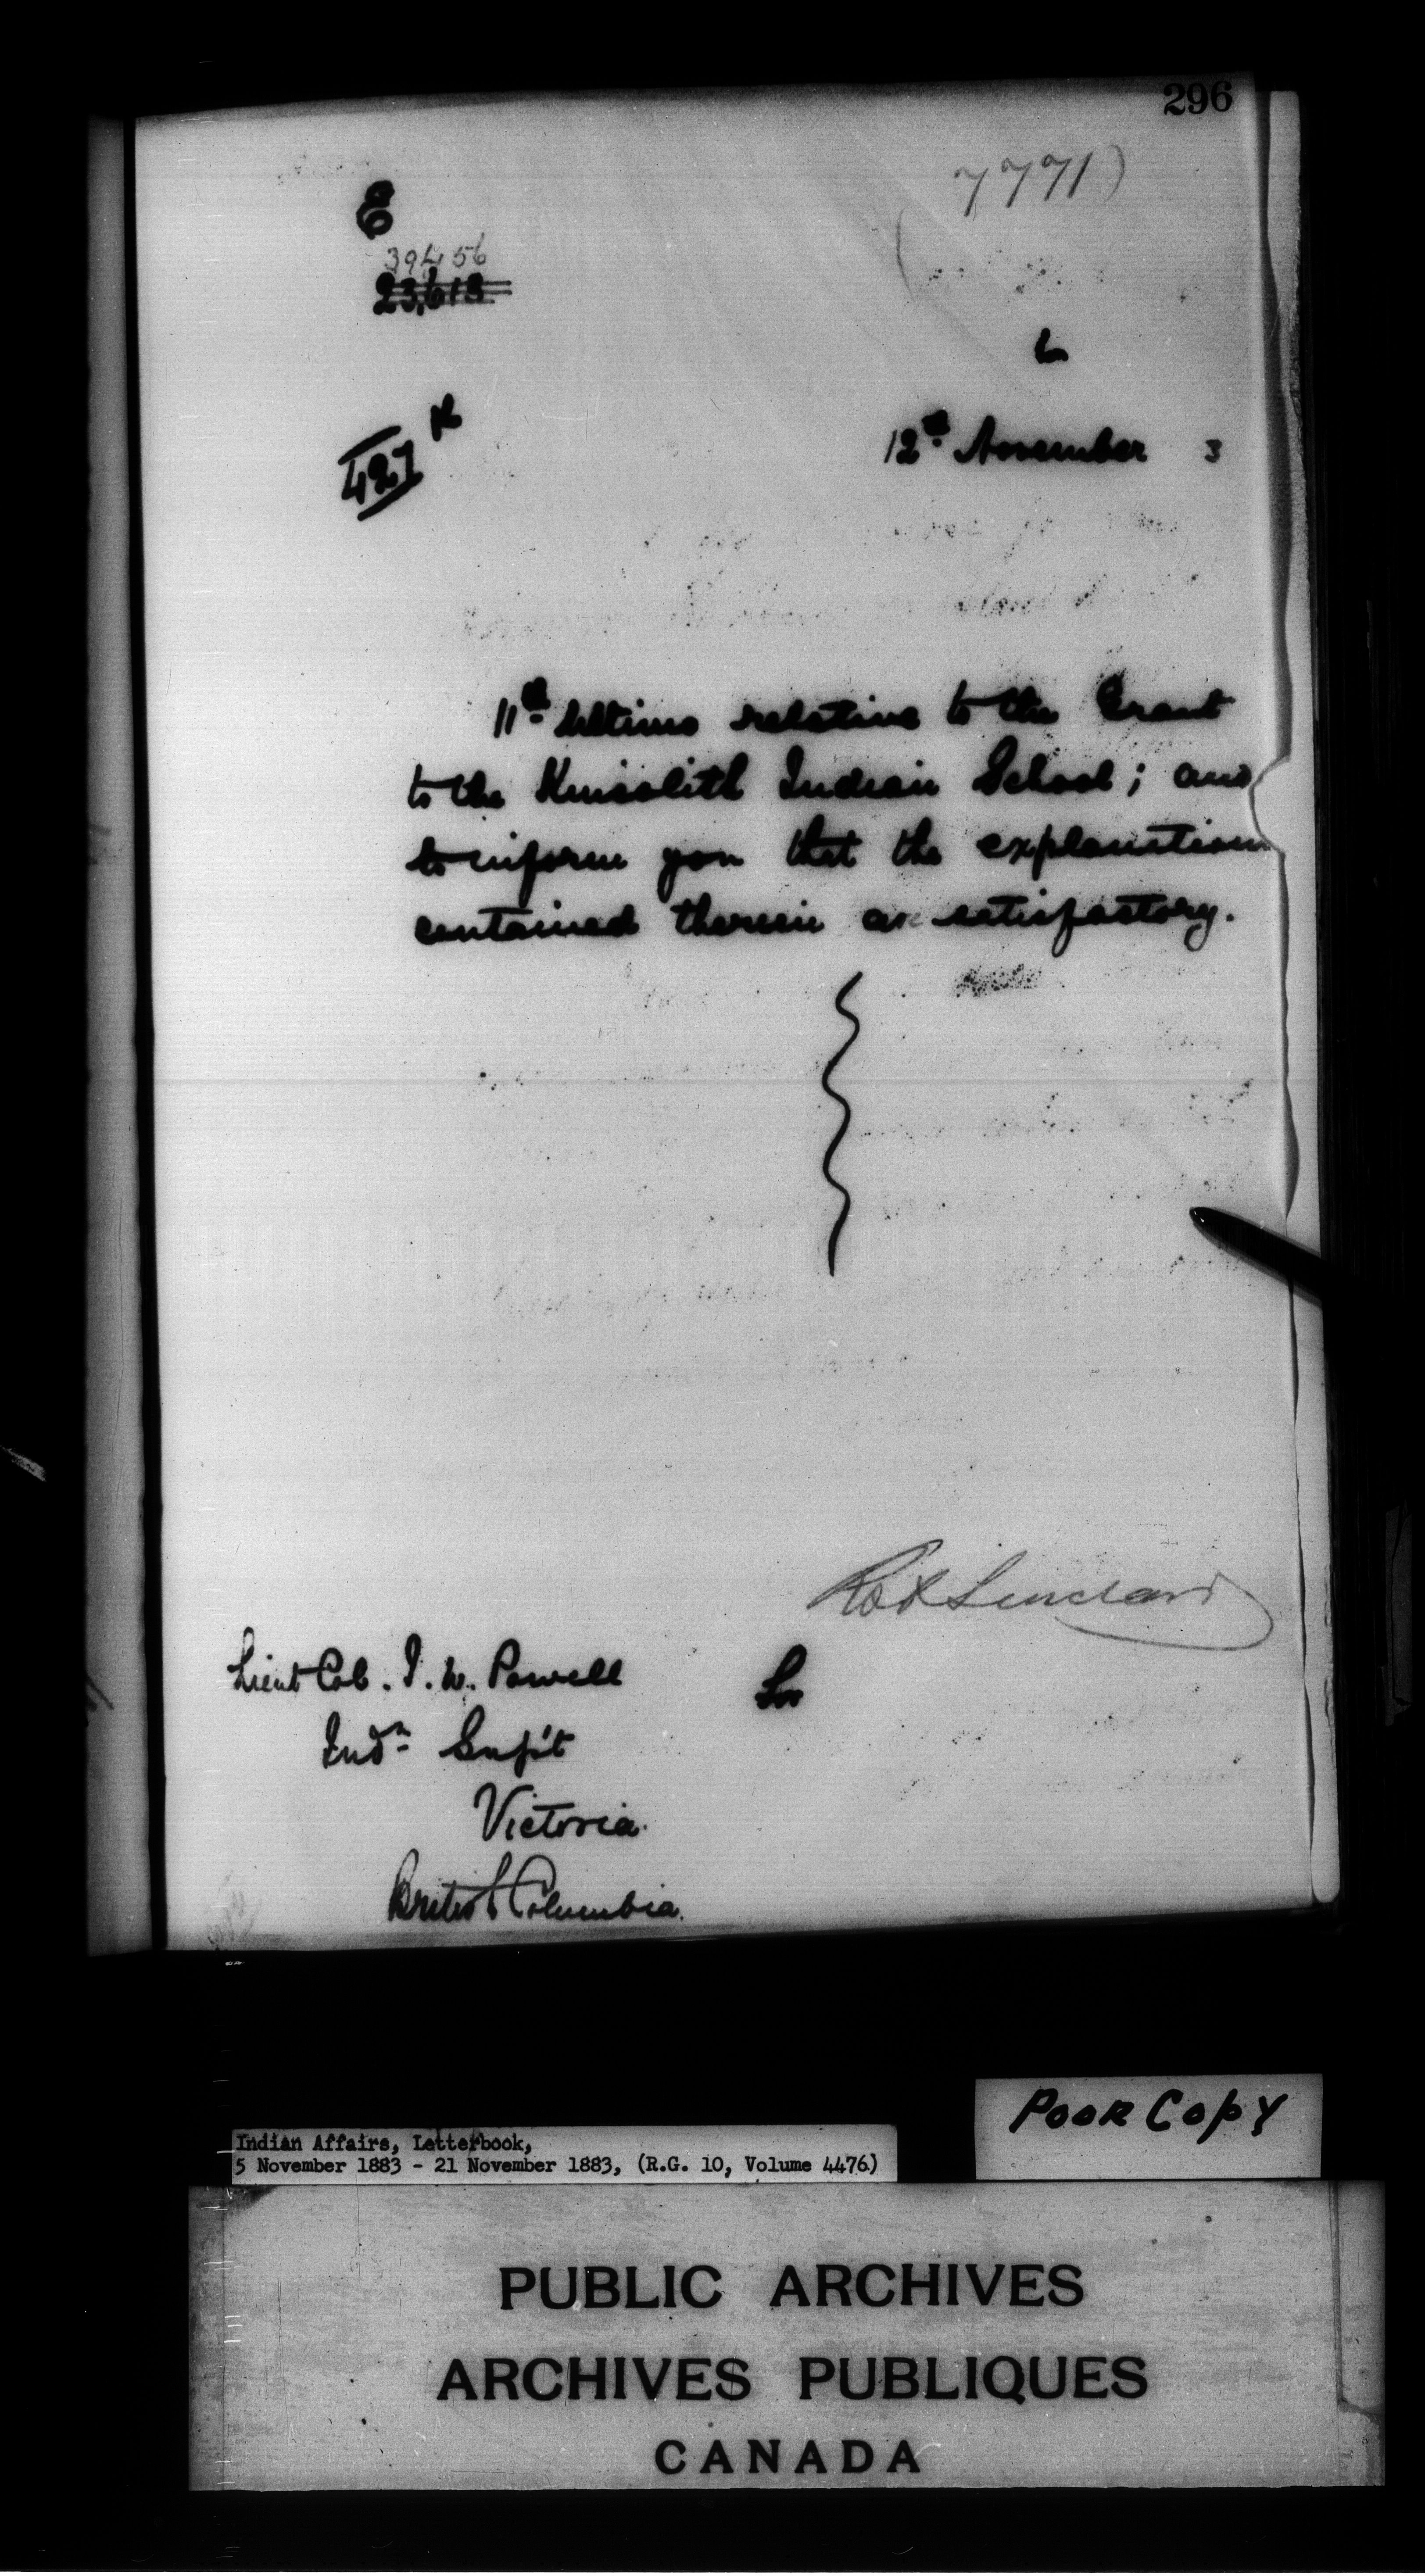 296
7771)
E
39456
23,613
427 K
12th November 3
11th Ultimo relative to the Grant
to the Kincolith Indian School; and
to inform you that the explanations
contained therein are satisfactory.
Rob Sinclair
Lieut Col. I. W. Powell
Indn Sup't
Victoria.
British Columbia.
Poor Copy
Indian Affairs, Letterbook,
5 November 1883 - 21 November 1883, (R.G. 10, Volume 4476)
PUBLIC ARCHIVES
ARCHIVES PUBLIQUES
CANADA